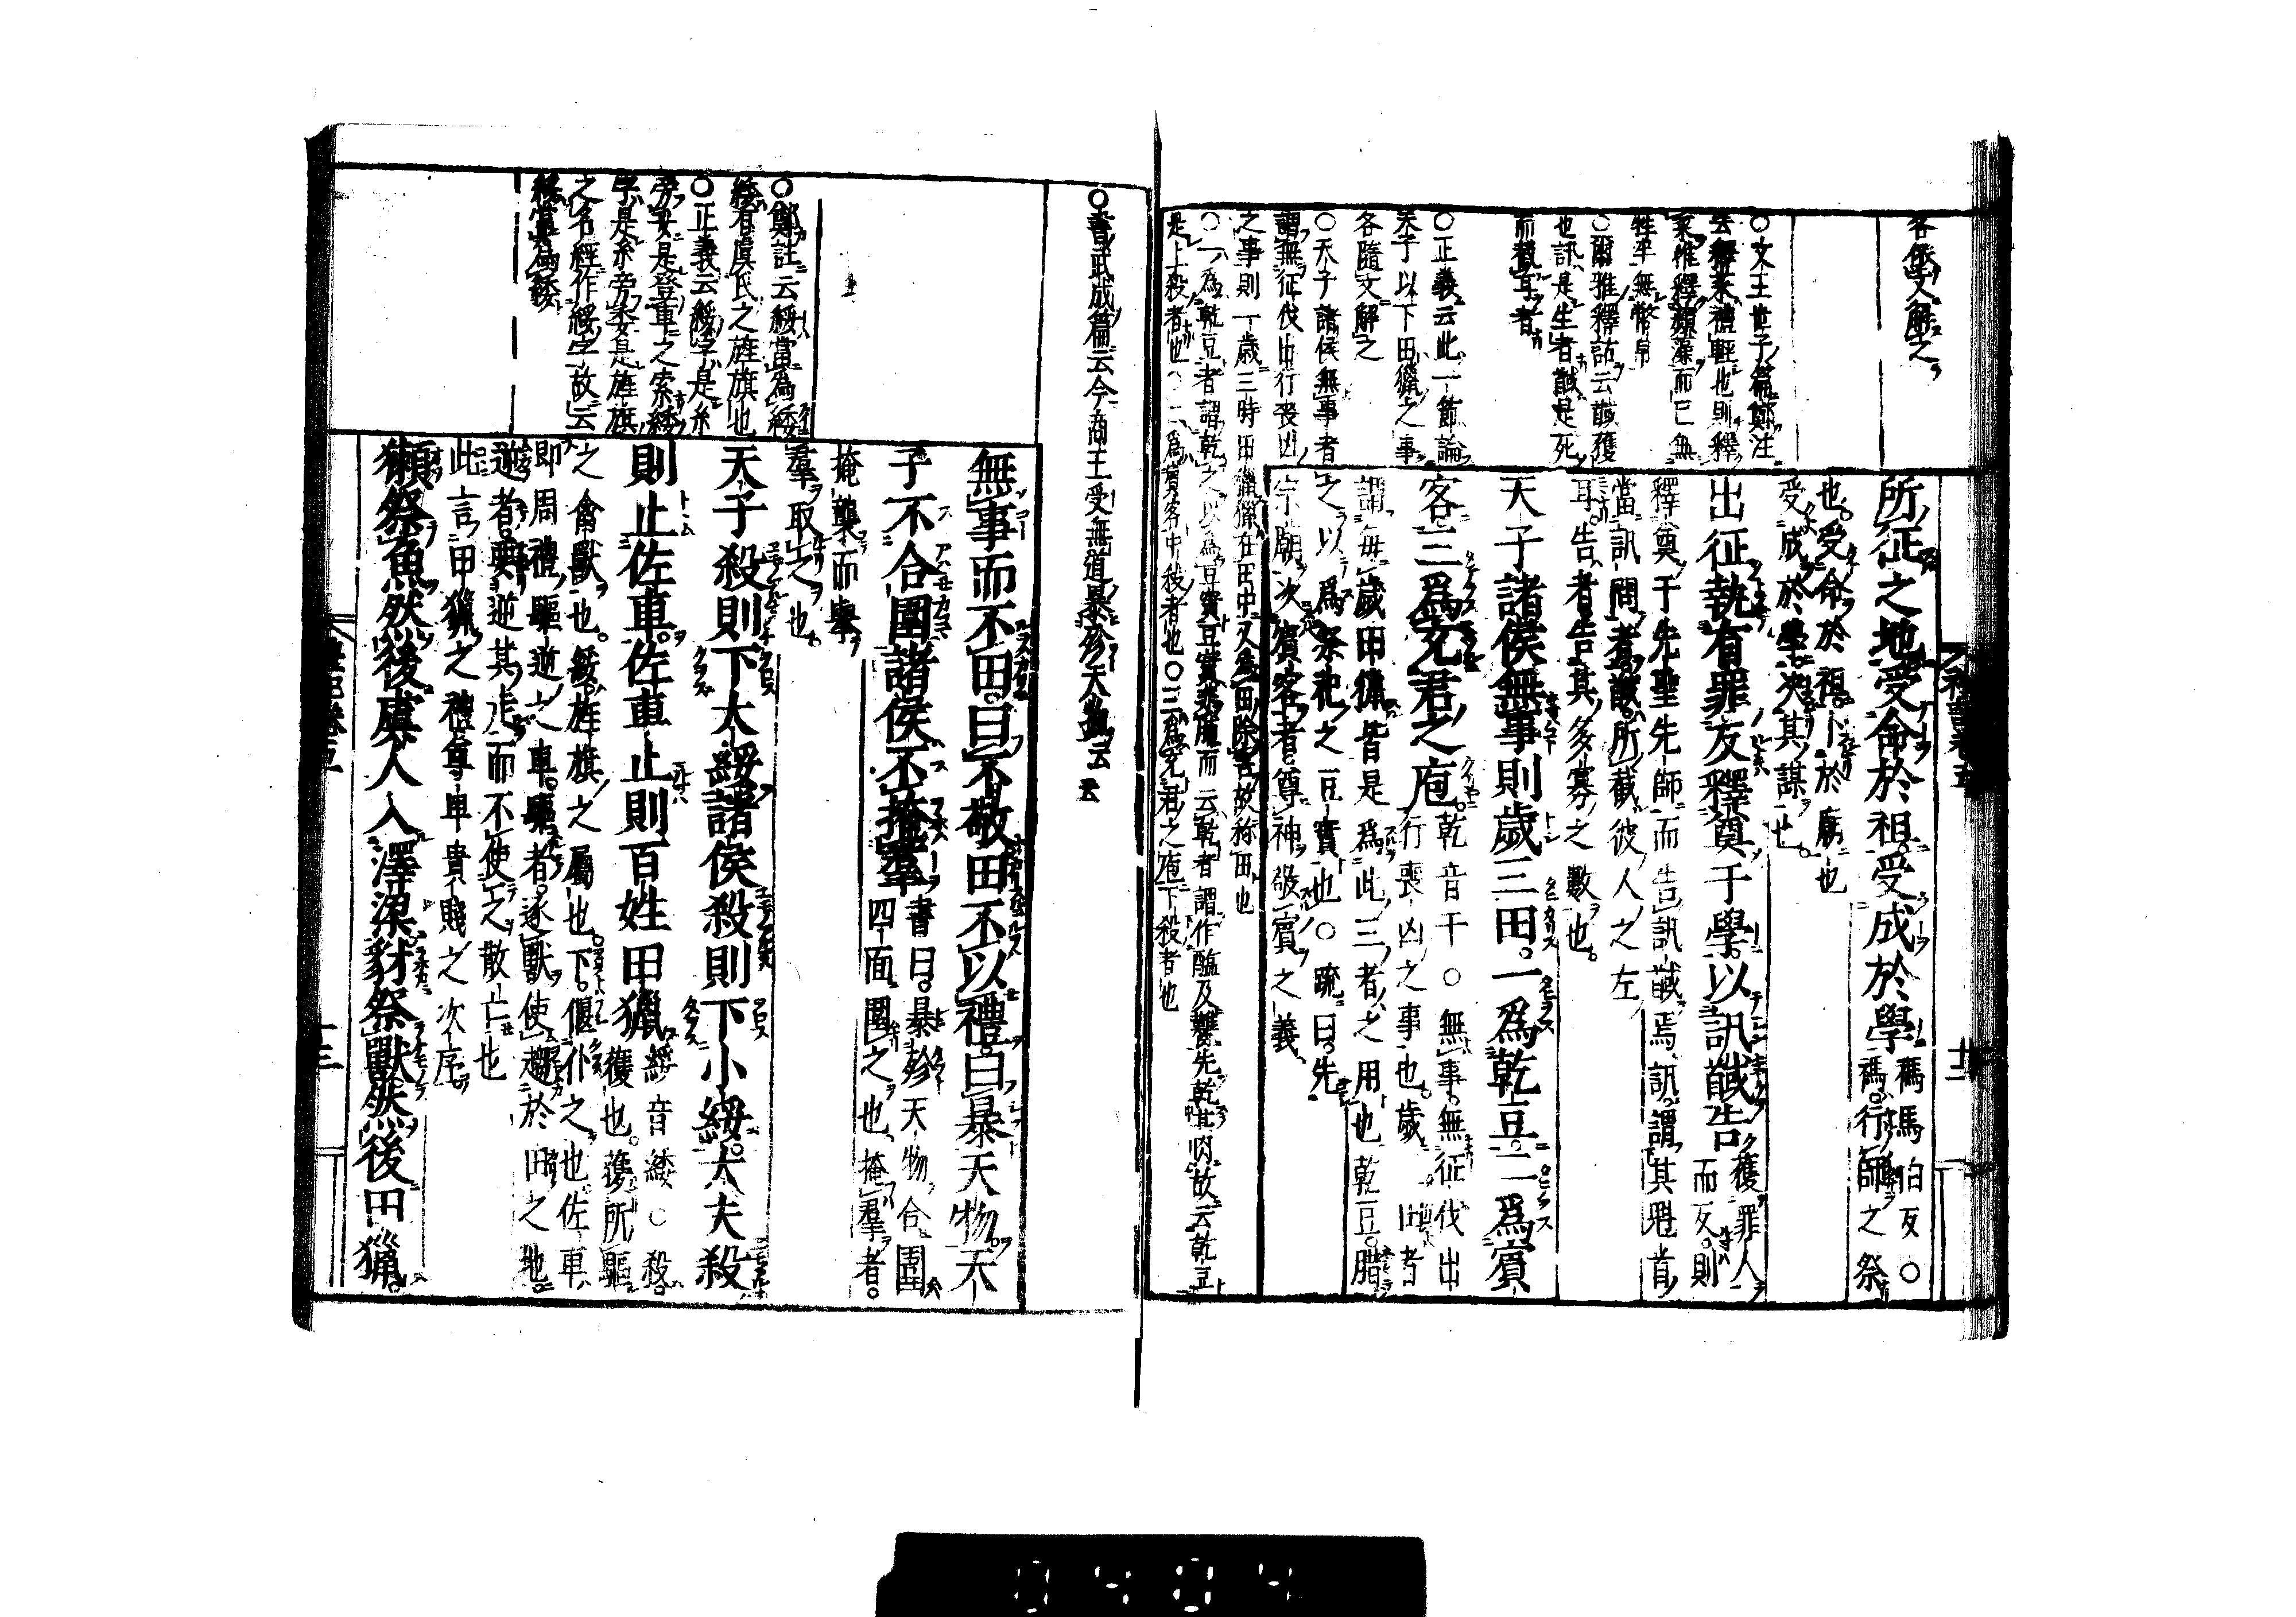 各依文解之
○文王世子篇鄭注
云釋菜禮輕也則釋
菜惟釋蘋藻而已無
牲牢無幣帛
○爾雅釋詁云馘獲
也訊是生者馘是死
而截耳者
○正義云此一節論
天子以下田獵之事
各隨文解之
○天子諸侯無事者
謂無征伐出行喪凶
之事則一歲三時田獵獵在田中又爲田除害故称田也
○一爲乾豆者謂乾之以爲豆實豆實非脯而云乾者謂作醢及臡先乾其肉故云乾豆
是上殺者也○二爲賓客中殺者也○三爲充君之庖下殺者也
所征之地受命於祖受成於學
禡馬怕反○
禡行師之祭
也受命於祖卜於廟也
受成於學决其謀也
出征執有罪反釋奠于學以訊馘告
獲罪人
而反則
釋奠于先聖先師而告訊馘焉訊謂其魁首
當訊問者馘所截彼人之左
耳告者告其多寡之數也
天子諸侯無事則歲三田一爲乾豆二爲賓
客三爲充君之庖
乾音干○無事無征伐出
行喪凶之事也歲三田者
謂每歲田獵皆是爲此三者之用也乾豆腊
之以爲祭祀之豆實也○疏曰先
宗廟次賓客者尊神敬賓之義
禮記卷五
十二
○書武成篇云今商王受無道暴殄天物云云
無事而不田曰不敬田不以禮曰暴天物天
子不合圍諸侯不掩羣
書曰暴殄天物合圍
四面圍之也掩羣者
掩襲而舉
羣取之也
○鄭註云綏當爲緌
緌有虞氏之旌旗也
○正義云綏字是糸
旁妥是登車之索緌
字是糸旁委是旌旗
之名經作綏字故云
綏當爲緌
天子殺則下大綏諸侯殺則下小綏大夫殺
則止佐車佐車止則百姓田獵
綏音緌○殺
獲也獲所驅
之禽獸也綏旌旗之屬也下偃仆之也佐車
即周禮驅逆之車驅者逐獸使趨於田之地
逆者要逆其走而不使之散亡也
此言田獵之禮尊卑貴賤之次序
獺祭魚然後虞人入澤梁豺祭獸然後田獵
禮記卷五
十三
0404